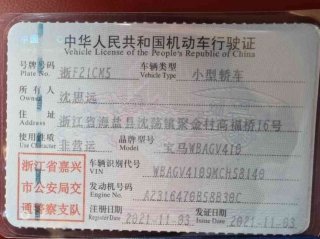 中华人民共和国机动车行驶证
Vehicle License of the People's Republic of China
号牌号码 浙F21CM5 车辆类型 小型轿车
Plate No. Vehicle Type
所有人 沈思远
Owner
住址 浙江省海盐县沈荡镇聚金村高福桥16号
Address
使用性质 非营运 品牌型号 宝马WBAGV410
Use Character Model
浙江省嘉兴
市公安局交
通警察支队
车辆识别代号 WBAGV4109MCH58140
VIN
发动机号码 A2316470B58B30C
Engine No.
注册日期 2021-11-03 发证日期 2021-11-03
Register Date Issue Date